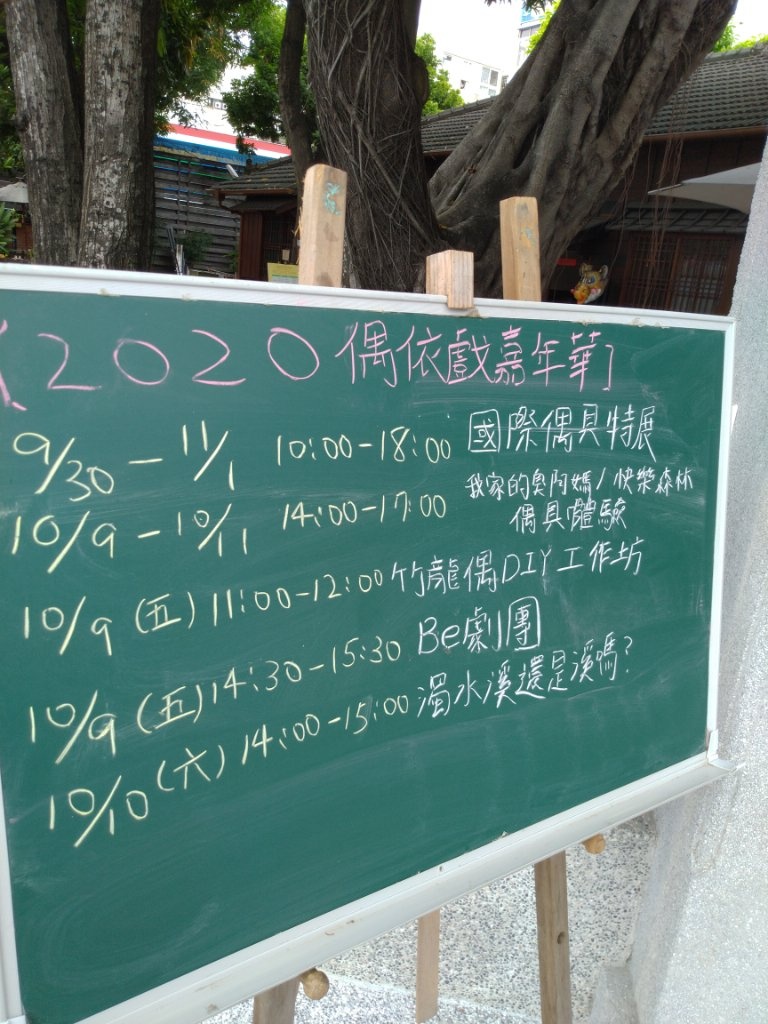 【2020偶依戲嘉年華】
9/30-11/1 10:00-18:00 國際偶具特展
10/9-10/11 14:00-17:00 我家的臭阿媽/快樂森林
偶具體驗
10/9(五)11:00-12:00 竹龍偶DIY工作坊
10/9(五)14:30-15:30 Be劇團
10/10(六)14:00-15:00 濁水溪還是溪嗎?